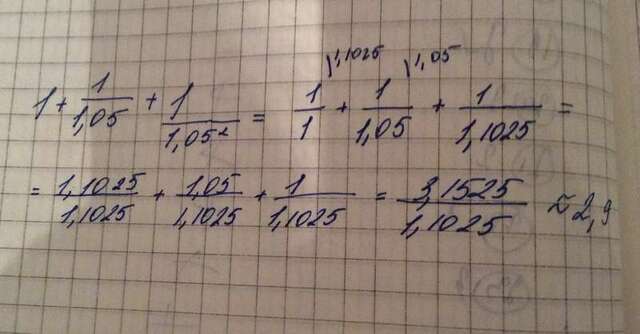 1 + 1/1,05 + 1/1,05² = 1/1 \1,1025 + 1/1,05 \1,05 + 1/1,1025 =
= 1,1025/1,1025 + 1,05/1,1025 + 1/1,1025 = 3,1525/1,1025 ≈ 2,9